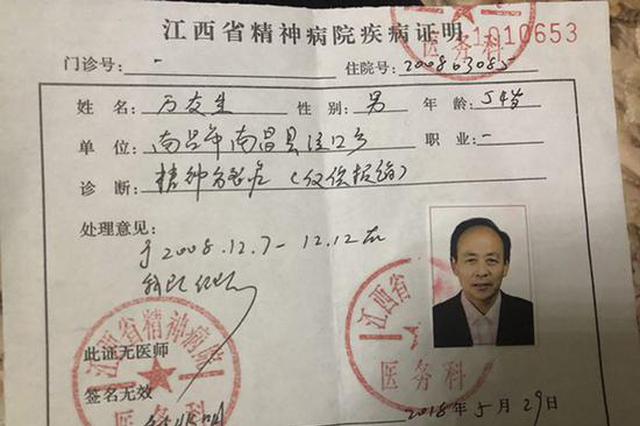 江西省精神病院疾病证明
1010653
门诊号: - 住院号: 200863085
姓名: 万友生 性别: 男 年龄: 54岁
单位: 南昌市南昌县泾口乡 职业: -
诊断: 精神分裂症(仅供报销)
处理意见:
于2008.12.7-12.12在
我院
此证无医师
签名无效
2018年5月29日
江西省精神病院
医务科
江西省
医务科
医务科